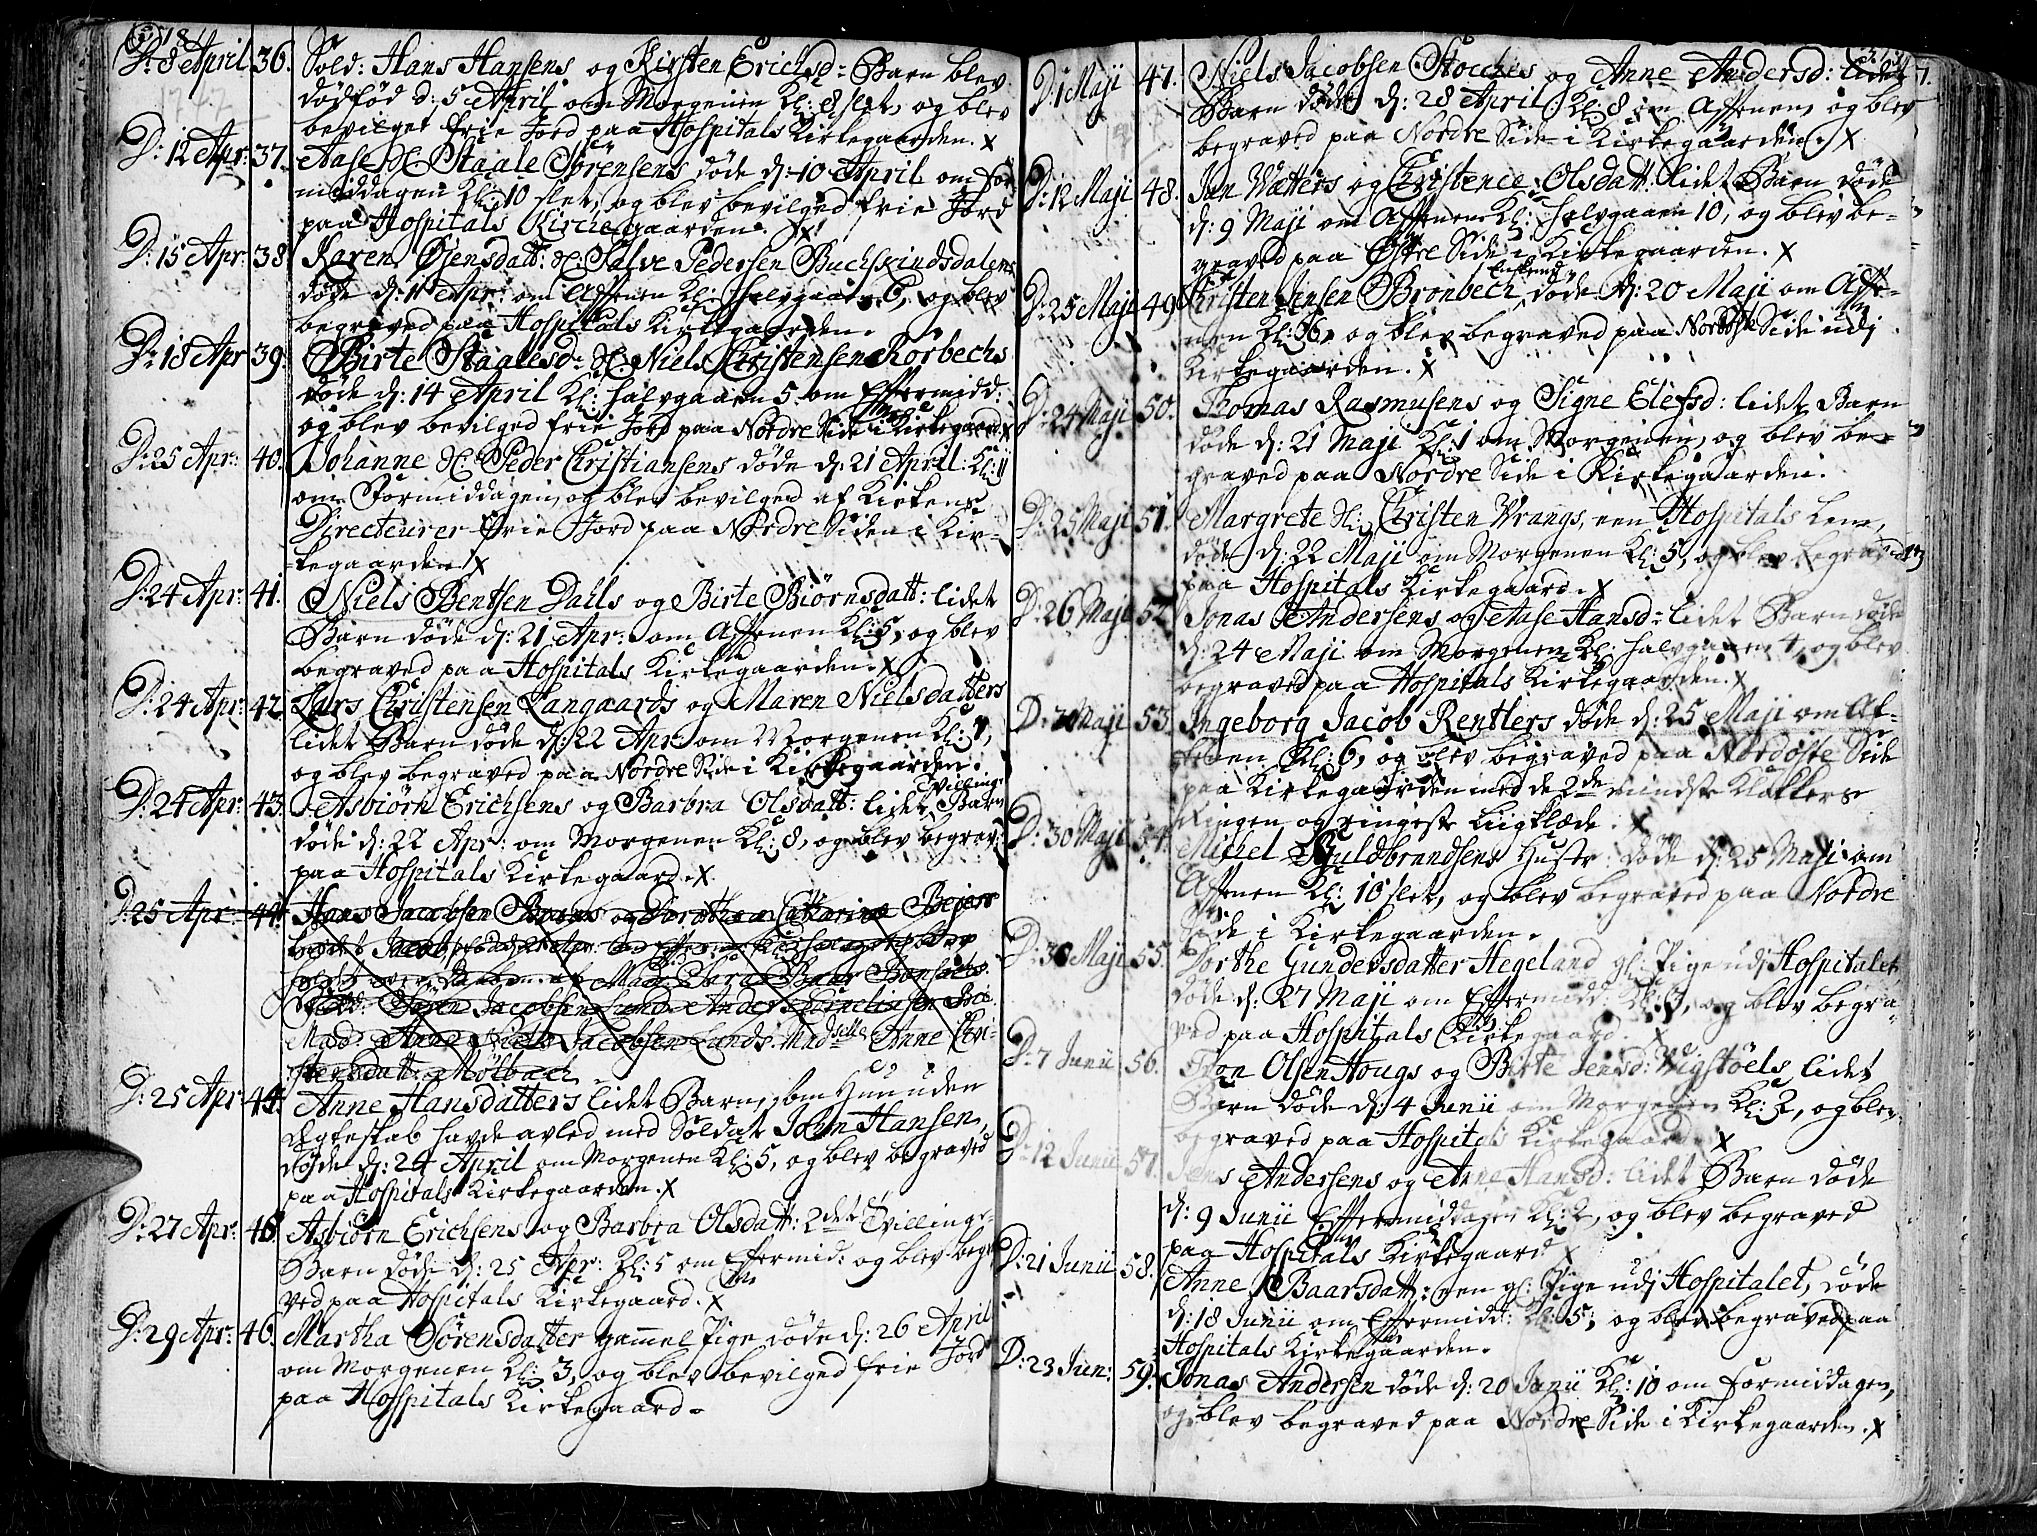 D: 8 April 36. Sold: Hans Hansens og Kirsten Erichsd: Barn blev
1742
dödföd d: 5 April om Morgenen Kl: 8 slet, og blev
bevilget frie Jord paa Hospitals Kirkegaarden. X
D: 12 Apr: 37. Aase Staale Sörensens döde d: 10 April om For-
middagen Kl: 10 slet, og blev bevilged frie Jord
paa Hospitals Kirkegaarden. X
D: 15 Apr: 38. Karen Ojensdatt: Salve Pedersen Buchskindsdalens
döde d: 11 Apr: om Aftenen Kl: halvgaaen 6, og blev
begraved paa Hospitals Kirkegaarden.
D: 18 Apr 39. Birte Staalesd: Niels Christensen Rörbechs
döde d: 14 April Kl: halvgaaen 5 om Eftermidd:
og blev bevilged frie Jord paa Nordre Side i Kirkegaard X
D: 25 Apr: 40. Johanne Peder Christiansens döde d: 21 April: Kl: 11
om Formiddagen, og blev bevilged af Kirkens
Directeurer frie Jord paa Nordre Siden i Kir-
kegaarden X
D: 24 Apr: 41. Niels Bentsen Dahls og Birte Biörnsdatt: lidet
Barn döde d: 21 Apr: om Aftenen Kl: 5, og blev
begraved paa Hospitals Kirkegaarden. X
D: 24 Apr: 42. Lars Christensen Langaards og Maren Nielsdatters
lidet Barn döde d: 22 Apr: om Morgenen Kl: 1,
og blev begraved paa Nordre Side i Kirkegaarden.
D: 24 Apr: 43. Asbiörn Erichsens og Barbra Olsdatt: lidet Tvilling Barn
döde d: 22 Apr: om Morgenen Kl: 8, og blev begrav:
paa Hospitals Kirkegaard. X
D: 25 Apr: 44. Hans Jacobsen og Dorothea Catharina Beyers
Jacob
over Daaben af Mad: Sara Baar
Sören Jacobsen Lund Anders Cornelisen
Mad: Anne Niels Jacobsen Lunds, Madselle Anne Chri-
stensdatt: Mölbach
D: 25 Apr 44. Anne Hansdatters lidet Barn, som Hun uden
Egteskab havde avled med Soldat John Hansen,
döde d: 24 April om Morgenen Kl: 5, og blev begraved
paa Hospitals Kirkegaarden. X
D: 27 Apr: 45 Asbiörn Erichsens og Barbra Olsdatt: 2det Tvillinge-
Barn döde d: 25 Apr: Kl: 5 om Eftermid: og blev begra-
ved paa Hospitals Kirkegaard. X
D: 29 Apr: 46. Martha Sörensdatter gammel Pige döde d: 26 April
om Morgenen Kl: 3, og blev bevilged frie Jord
paa Hospitals Kirkegaard.
D: 1 Maji 47. Niels Jacobsen Stoches og Anne Andersd: lidet
Barn döde d: 28 April Kl: 8 om Aftenen, og blev
begraved paa Nordre Side i Kirkegaarden. X
D: 12 Maji 48. Jan Watters og Christence Olsdatt: lidet Barn döde
d: 9 Maji om Aftenen Kl: halvgaaen 10, og blev be-
graved paa Østre Side i Kirkegaarden. X
D: 25 Maji 49 Christen Jensen Brönbech döde d: 20 Maji om Afte-
nen Kl: 6, og blev begraved paa Nordöste Side udi
Kirkegaarden. X
D: 24 Maji 50. Thomas Rasmusens og Signe Elefsd: lidet Barn
döde d: 21 Maji Kl: 1 om Morgenen, og blev be-
graved paa Nordre Side i Kirkegaarden.
D: 25 Maji 51. Margrete Christen Vrangs, een Hospitals Lem,
döde d: 22 Maji om Morgenen Kl: 5, og blev begraved
paa Hospitals Kirkegaard. X
D: 26 Maji 52. Jonas Andersens og Aase Hansd: lidet Barn döde
d: 24 Maji om Morgenen Kl: halvgaaen 4, og blev
begraved paa Hospitals Kirkegaarden. X
Maji 53. Ingeborg Jacob Rentlers döde d: 25 Maji om Af-
tenen Kl: 6, og blev begraved paa Nordöste Side
paa Kirkegaarden med de 2de mindste Klokkers
Ringen og ringeste Liigklæde. X
D: 30 Maji 54. Michel Guldbrandsens Hustr: döde d: 25 Maji om
Aftenen Kl: 10 slet, og blev begraved paa Nordre
Side i Kirkegaarden.
D: 30 Maji 55. Dorthe Gundersdatter Hegeland gl: Pige udi Hospitalet
döde d: 27 Maji om Eftermidd: og blev begra-
ved paa Hospitals Kirkegaard. X
D: 7 Junii 56. Olsen Hougs og Birte Jensd: Vigstöels lidet
Barn döde d: 4 Junii om Morgenen Kl: 2, og blev
begraved paa Hospitals Kirkegaard. X
D: 12 Junii 57. Jens Andersens og Anne Hansd: lidet Barn döde
d: 9 Junii Eftermiddagen Kl: 2, og blev begraved
paa Hospitals Kirkegaard X
D: 21 Junii 58. Anne Baarsdatt: een gl: Pige udi Hospitalet, döde
d: 18 Junii om Eftermidd: Kl: 5, og blev begraved paa
Hospitals Kirkegaarden.
D: 23 Jun: 59. Jonas Andersen döde d: 20 Junii Kl: 10 om Formiddagen,
og blev begraved paa Nordre Side i Kirkegaarden. X